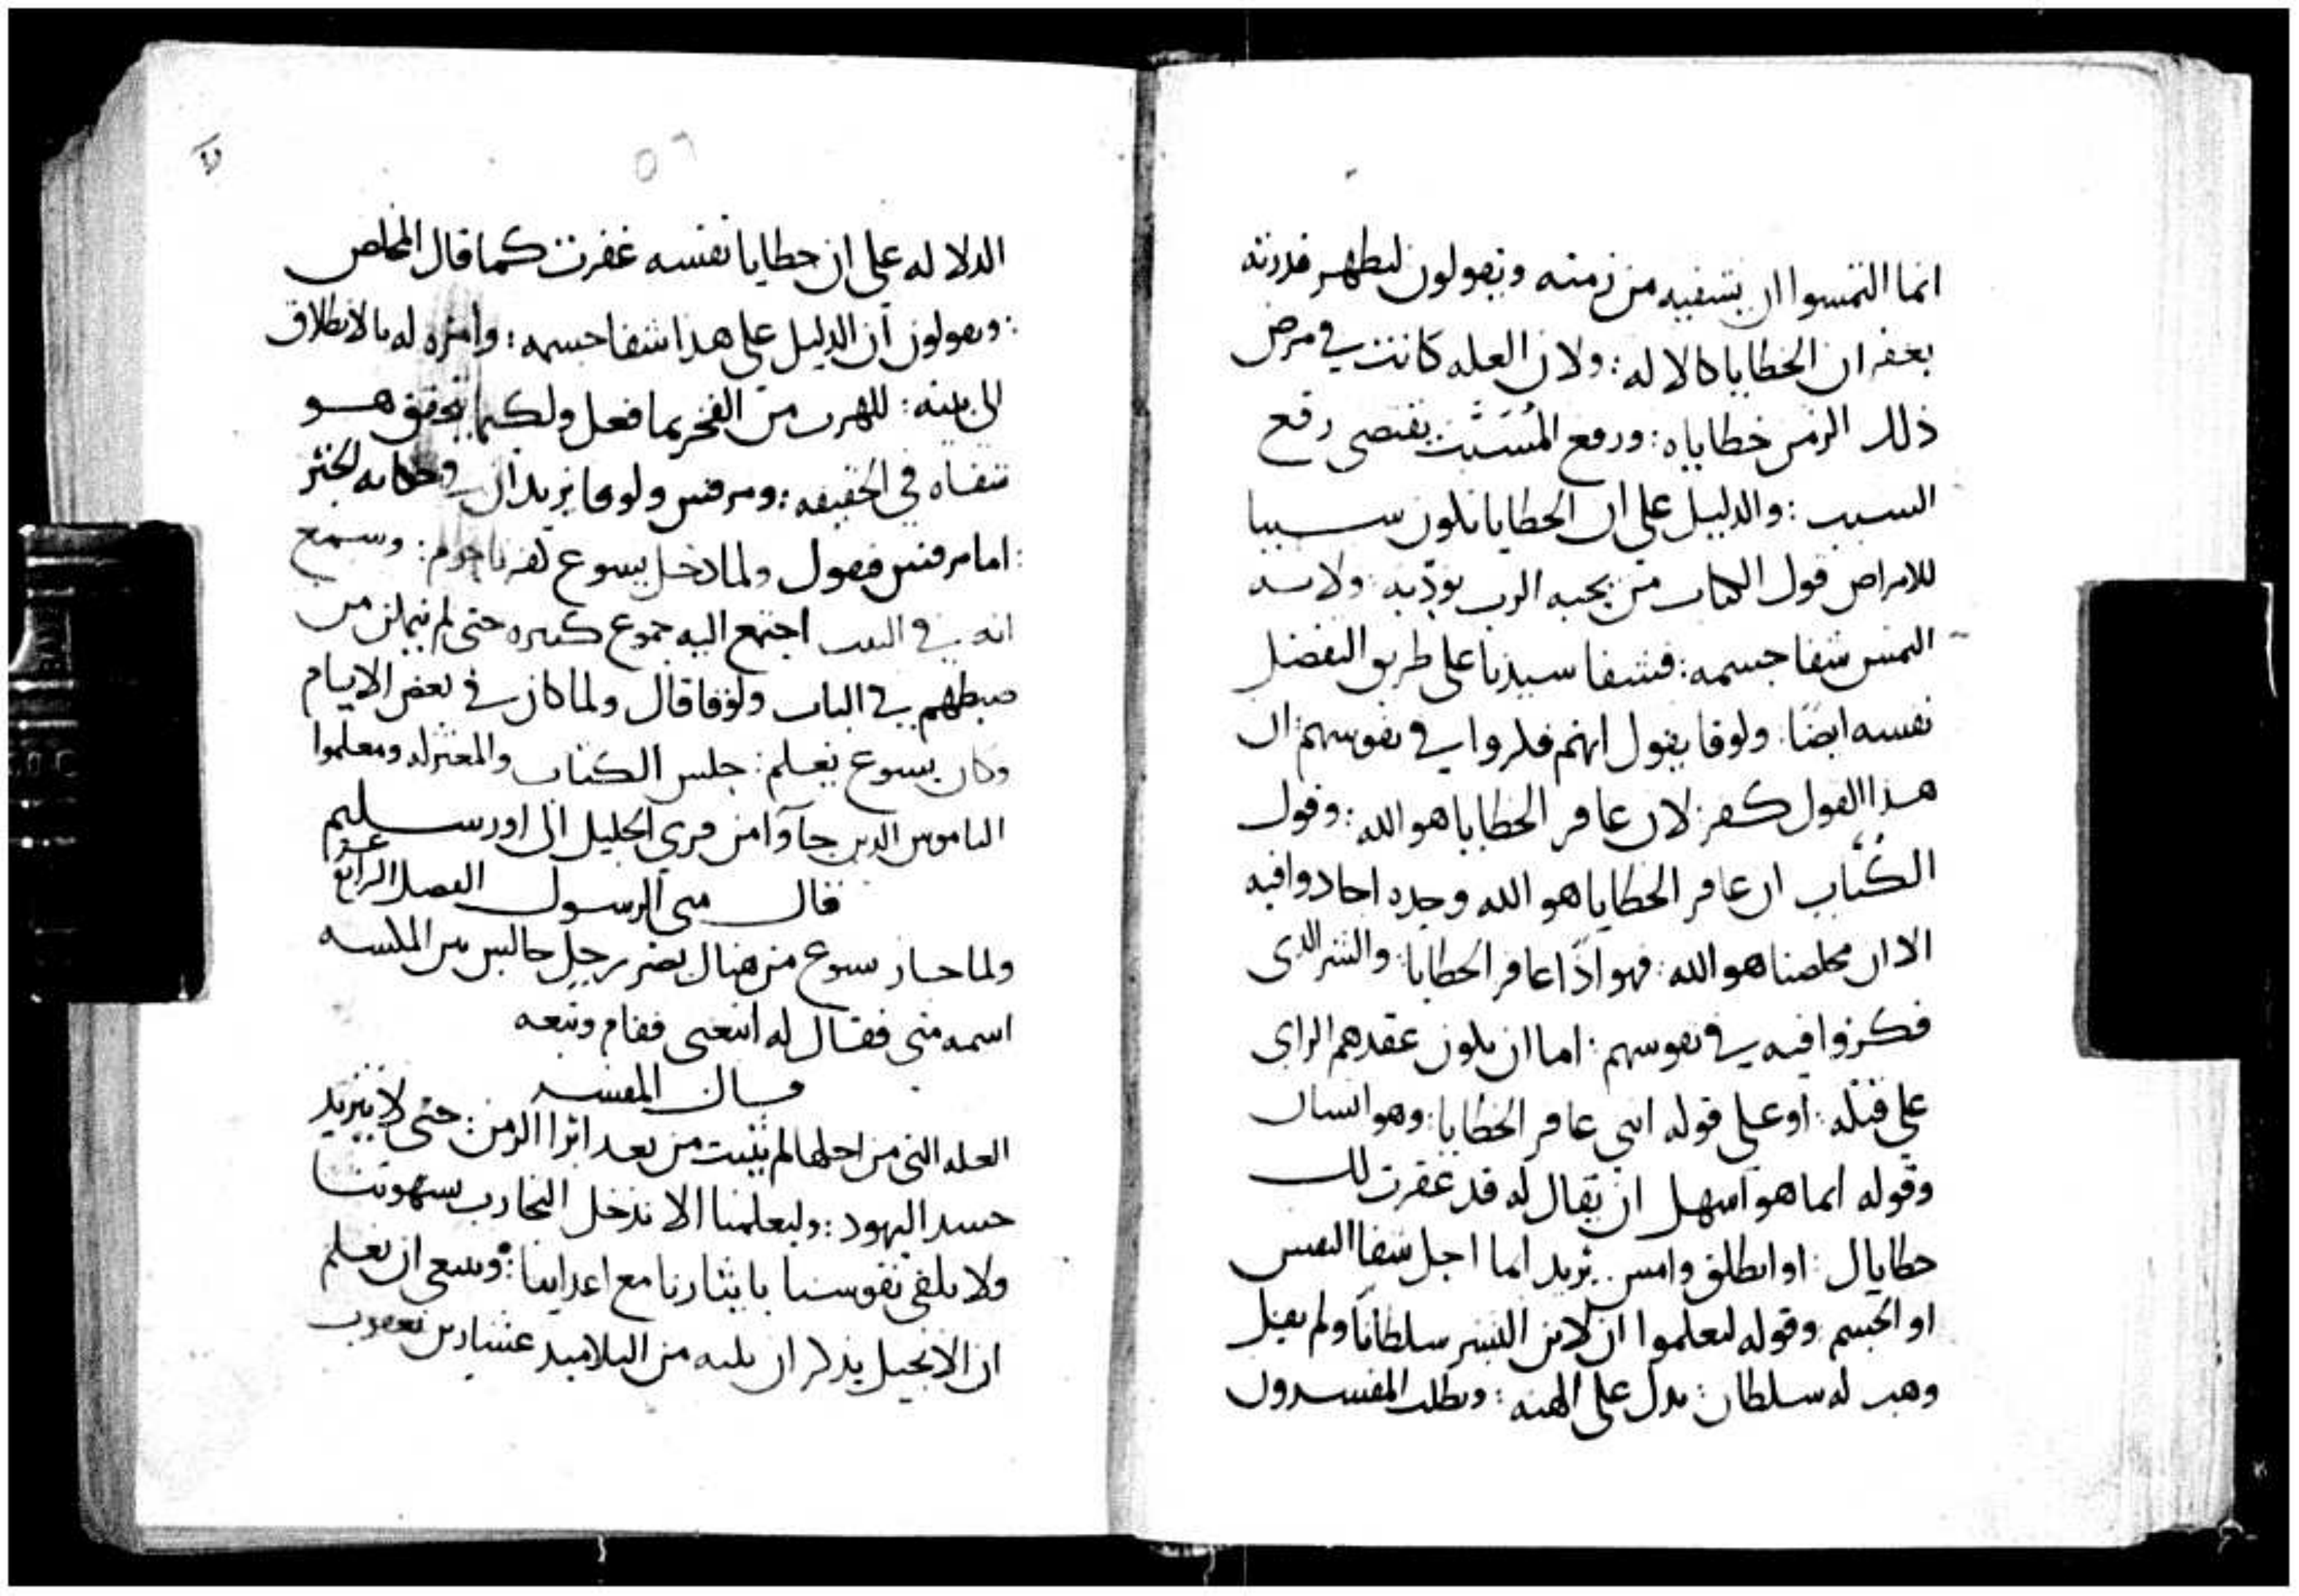 انما التمسوا ان يشفيه من زمنه ويقولون ليظهر قدرته
بغفران الخطايا كالاله : ولان العله كانت في مرض
ذلك الزمن خطاياه : ورفع المُسَبَّب يقتضي رفع
السبب : والدليل على ان الخطايا تكون سببا
للامراض قول الكتاب من يحبه الرب يودّبه : ولانه
التمس شفا جسمه : فشفا سيدنا على طريق التفضل
نفسه ايضًا . ولوقا يقول انهم فكروا في نفوسهم ان
هذا القول كفر : لان غافر الخطايا هو الله : وقول
الكُتّاب ان غافر الخطايا هو الله وحده اجادوا فيه
الا ان مخلصنا هو الله : فهو اذًا غافر الخطايا : والشر الذي
فكروا فيه في نفوسهم : اما ان يكون عقدهم الراي
على قتله : او على قوله انني غافر الخطايا : وهو انسان
وقوله ايما هو اسهل ان يقال له قد غفرت لك
خطاياك : او انطلق وامس . يريد ايما اجل شفا النفس
او الجسم وقوله لتعلموا ان لابن البشر سلطانًا ولم يقل
وهب له سلطان : يدل على الهيته : ويطلب المفسرون
الدلاله على ان خطايا نفسه غفرت كما قال المخلص
: ويقولون ان الدليل على هذا شفا جسمه : وامره له بالانطلاق
الى بيته : للهرب من الفخر بما فعل ولكيما يتحقق هو
شفاه في الحقيقه : ومرقس ولوقا يزيدان في حكايه الخبر
: اما مرقس فيقول ولما دخل يسوع كفرناحوم : وسمع
انه في البيت اجتمع اليه جموع كثيره حتى لم يتمكن من
ضبطهم في الباب ولوقا قال ولما كان في بعض الايام
وكان يسوع يعلم : جلس الكتاب والمعتزله ومعلموا
الناموس الدين جاآوا من قرى الجليل الى اورسليم
قال متى الرسول الفصل الرابع
ولما جاز يسوع من هناك بصر برجل جالس من المكسه
اسمه متى فقال له اتبعني فقام وتبعه
قال المفسر
العله التي من اجلها لم يثبت من بعد ابرا الزمن : حتى لا يتزيد
حسد اليهود : وليعلمنا الا ندخل التجارب بشهوتنا
ولا نلقي نفوسنا بايثارنا مع اعداينا : وينبغي ان نعلم
ان الانجيل يذكر ان ثلثه من التلاميذ عشارين يعقوب